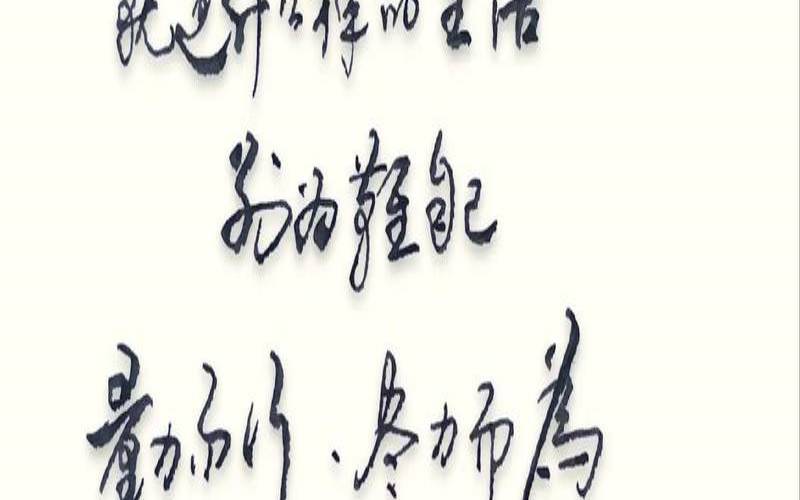 就过什么样的生活
别为难自己
量力而行、尽力而為